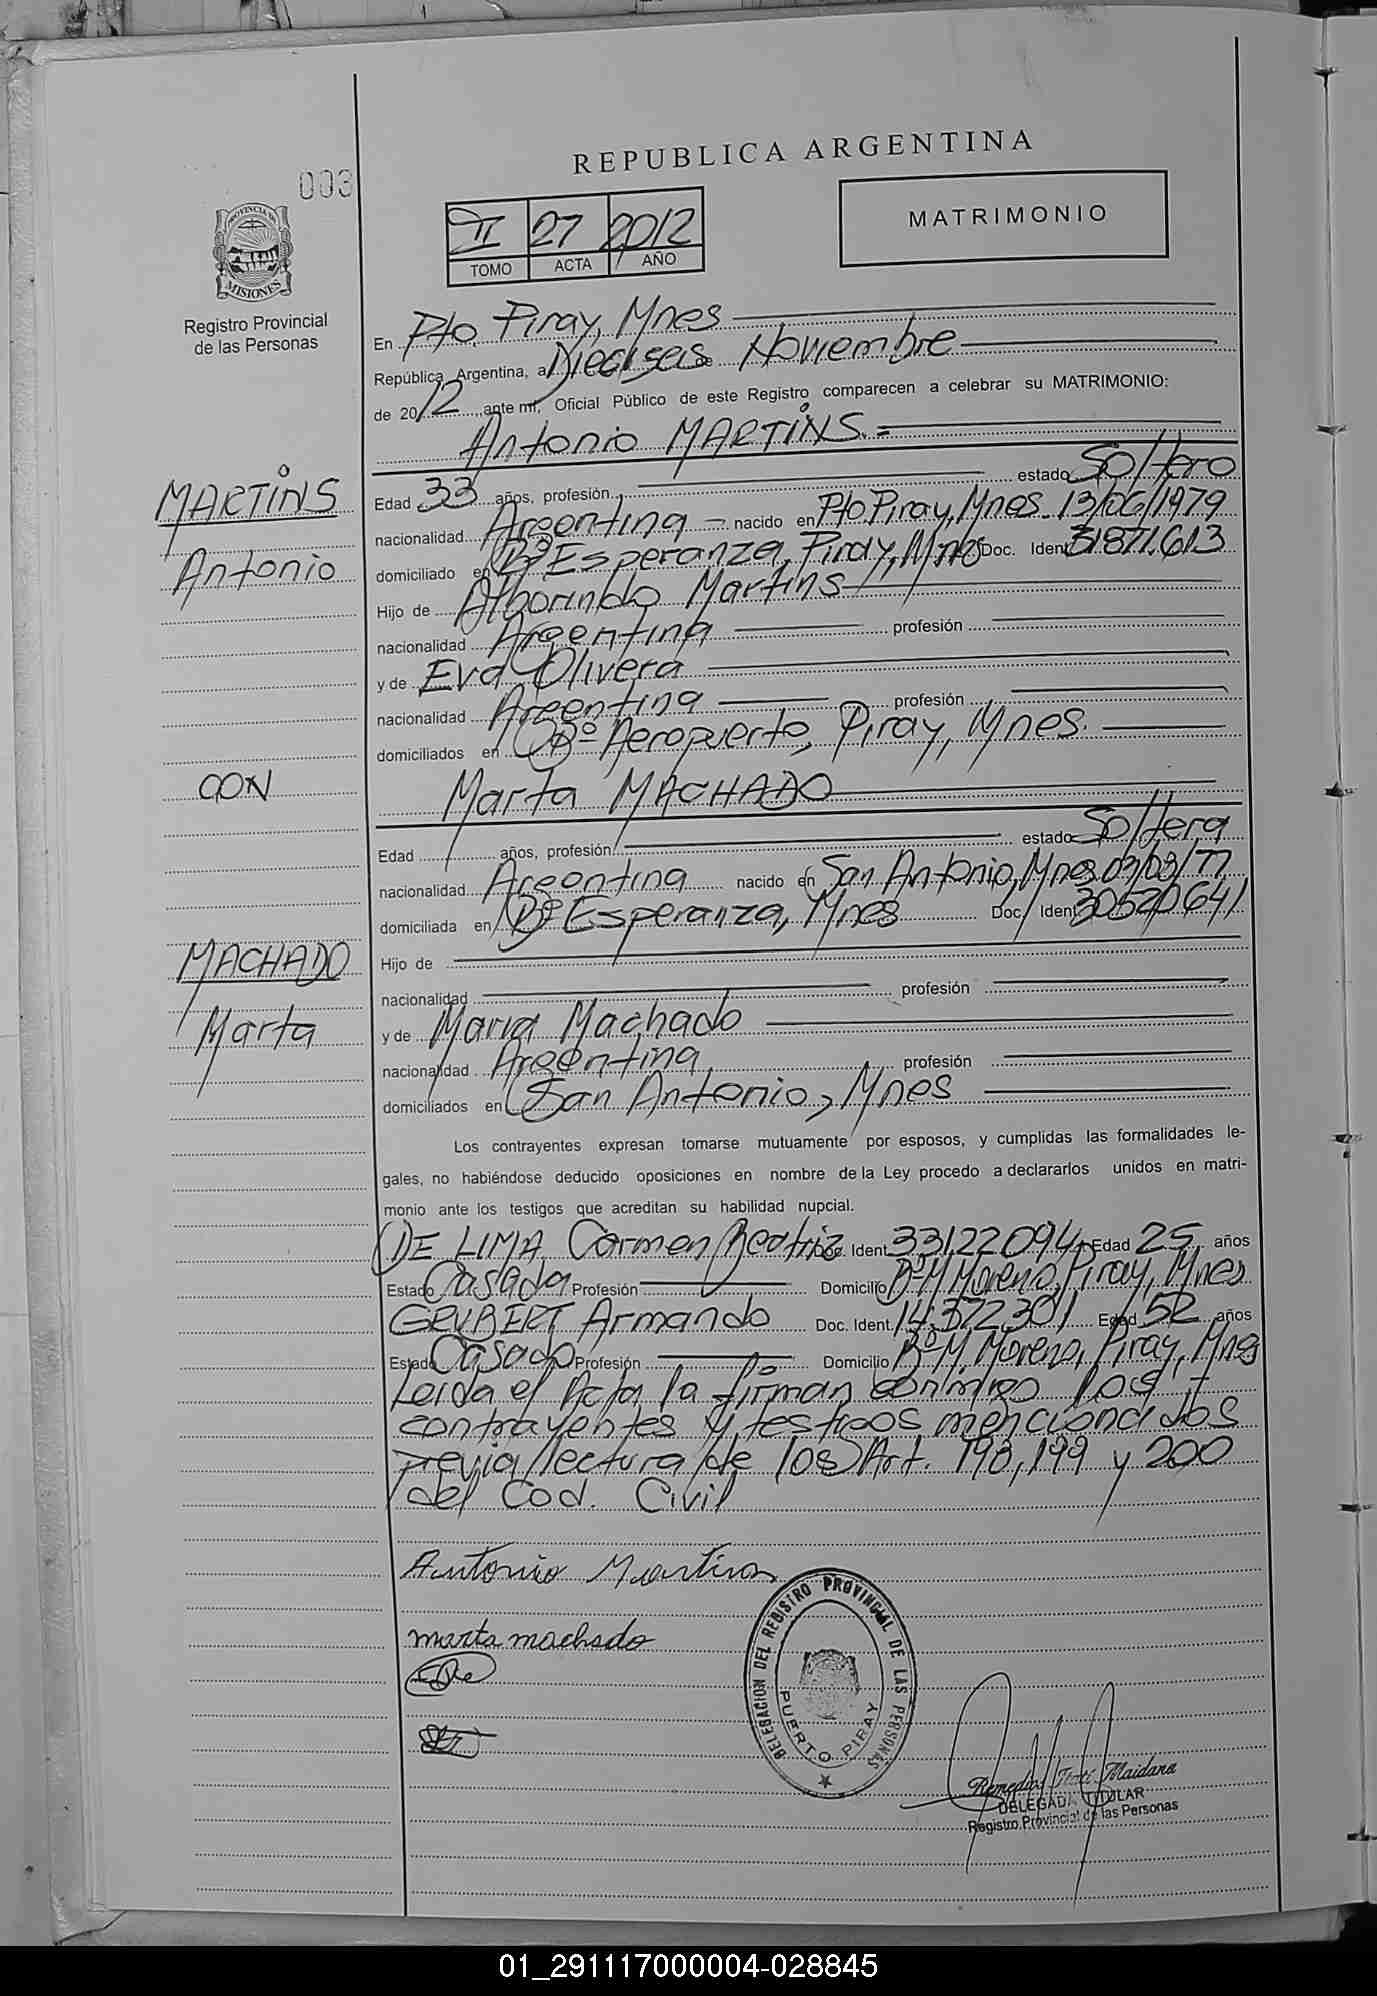 REPUBLICA ARGENTINA
003
PROVINCIA DE
MISIONES
Registro Provincial
de las Personas
II 27 2012
TOMO ACTA AÑO
MATRIMONIO
En Pto Piray, Mnes
República Argentina, a Dieciseis de Noviembre
de 2012 ante mí, Oficial Público de este Registro comparecen a celebrar su MATRIMONIO:
Antonio MARTINS.=
MARTINS
Antonio
CON
MACHADO
Marta
Edad 33 años, profesión estado Soltero
nacionalidad Argentina nacido en Pto Piray, Mnes 13/06/1979
domiciliado en Bº Esperanza, Piray, Mnes Doc. Ident 31871.613
Hijo de Martins
nacionalidad Argentina profesión
y de Eva Olivera
nacionalidad Argentina profesión
domiciliados en Bº Aeropuerto, Piray, Mnes.
Marta MACHADO
Edad años, profesión estado Soltera
nacionalidad Argentina nacido en San Antonio, Mnes 03/03/77
domiciliada en Bº Esperanza, Mnes Doc. Ident 30520641
Hijo de
nacionalidad profesión
y de Maria Machado
nacionalidad Argentina profesión
domiciliados en San Antonio, Mnes
Los contrayentes expresan tomarse mutuamente por esposos, y cumplidas las formalidades le-
gales, no habiéndose deducido oposiciones en nombre de la Ley procedo a declararlos unidos en matri-
monio ante los testigos que acreditan su habilidad nupcial.
DE LIMA Carmen Beatriz Doc. Ident. 33122094 Edad 25 años
Estado Casada Profesión Domicilio Bº M Moreno, Piray, Mnes
GRUBERT Armando Doc. Ident. 14.372.301 Edad 52 años
Estado Casado Profesión Domicilio Bº M. Moreno, Piray, Mnes
Leida el Acta la firman conmigo los
contrayentes y testigos mencionados
previa lectura de los Art. 198, 199 y 200
del Cod. Civil
Antonio Martins
marta machado
DELEGACION DEL REGISTRO PROVINCIAL DE LAS PERSONAS
PUERTO PIRAY
Remedios Itatí Maidana
DELEGADA TITULAR
Registro Provincial de las Personas
01_291117000004-028845